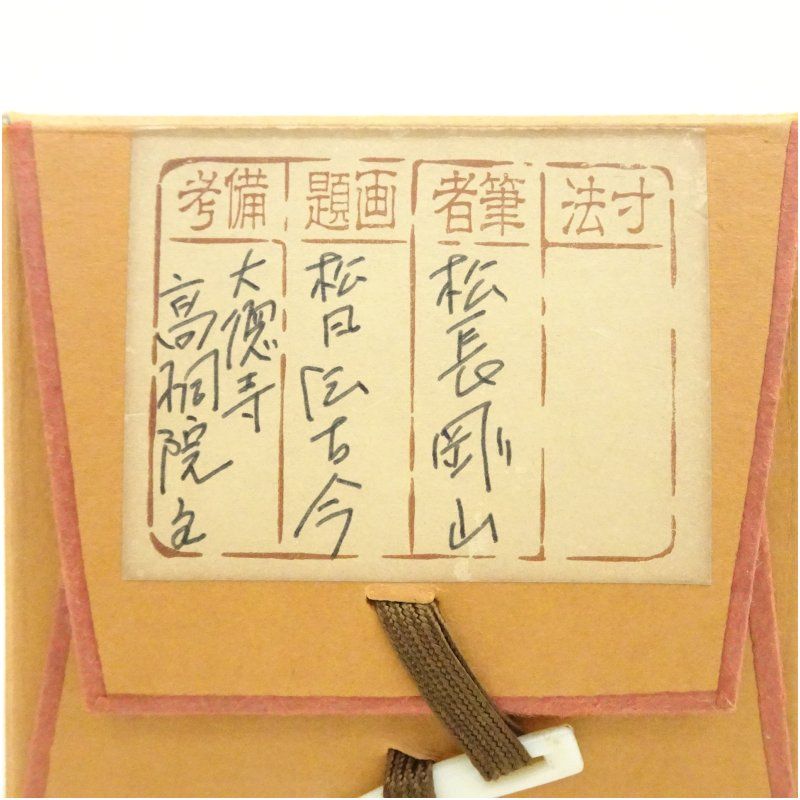 寸法
筆者
松長剛山
画題
松 伝古今
備考
大徳寺
高桐院主